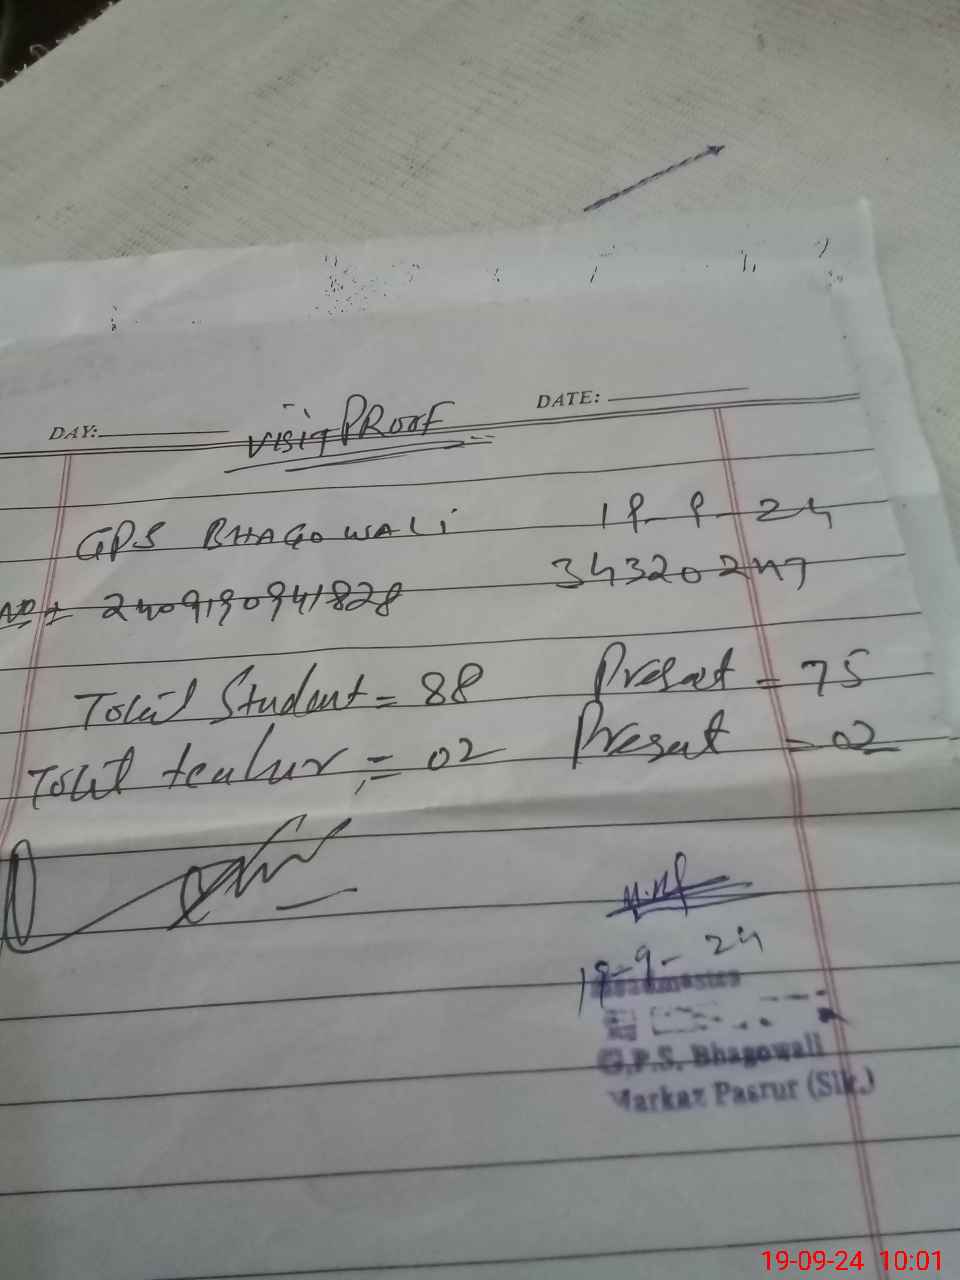 DAY: DATE:
visit PROOF
GPS BHAGOWALI 19-9-24
NO: 2409190941828 34320247
Total Student = 88 Present = 75
Total teacher = 02 Present = 02
19-9-24
Headmaster
G.P.S. Bhagowali
Markaz Pasrur (Slk.)
19-09-24 10:01